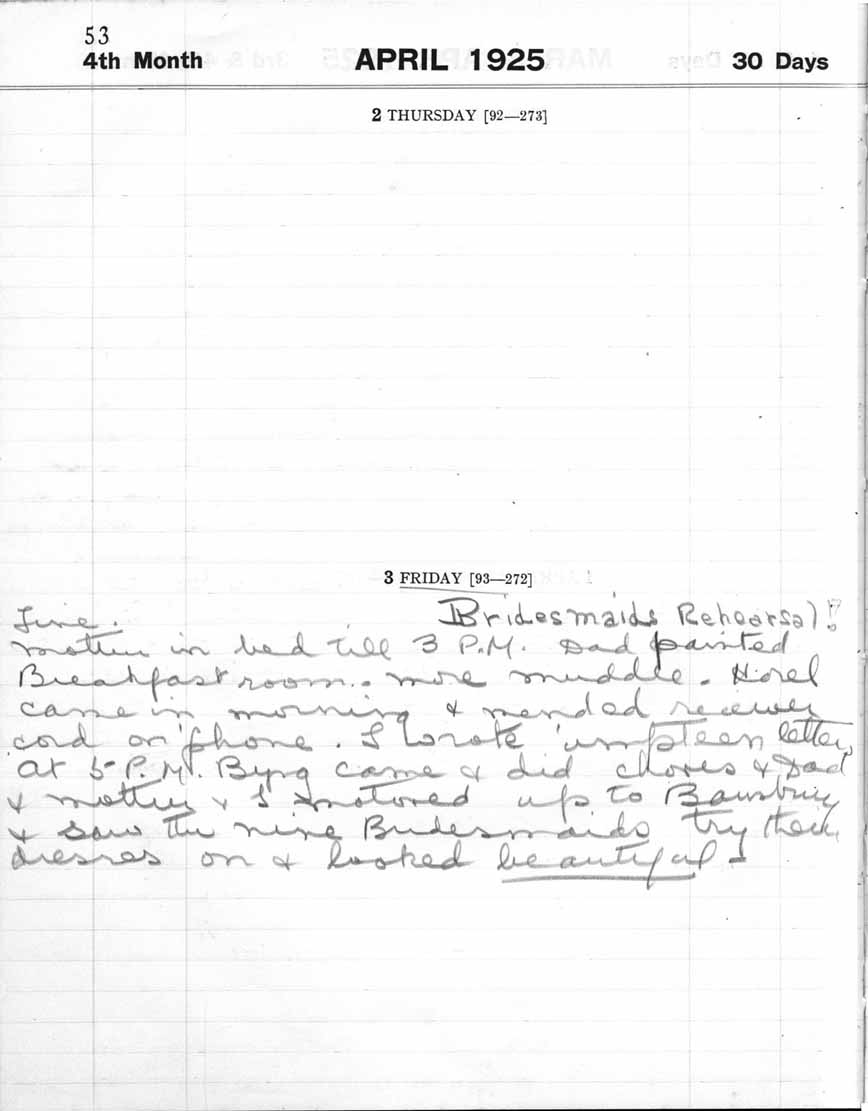 53
4th Month APRIL 1925 30 Days
2 THURSDAY [92—273]
3 FRIDAY [93—272]
Fine. Bridesmaids Rehearsal!
Mother in bed till 3 P.M. Dad painted
Breakfast room. more muddle.
came in morning & mended receiver
cord on phone. I wrote umpteen letters
at 5 P.M. Byng came & did chores & Dad
& mother & I motored up to
& saw the nine Bridesmaids try their
dresses on & looked beautiful